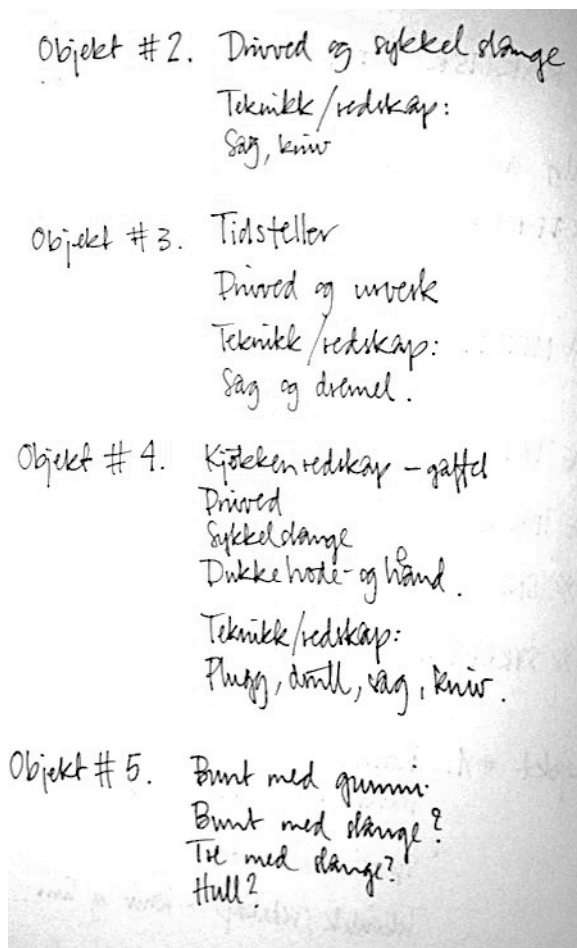 Objekt #2. Drivved og sykkelslange
Teknikk/redskap:
Sag, kniv
Objekt #3. Tidsteller
Drivved og urverk
Teknikk/redskap:
Sag og dremel.
Objekt #4. Kjøkkenredskap - gaffel
Drivved
Sykkelslange
Dukkehode- og hånd.
Teknikk/redskap:
Plugg, drill, sag, kniv.
Objekt #5. Bunt med gummi.
Bunt med slange?
Tre med slange?
Hull?